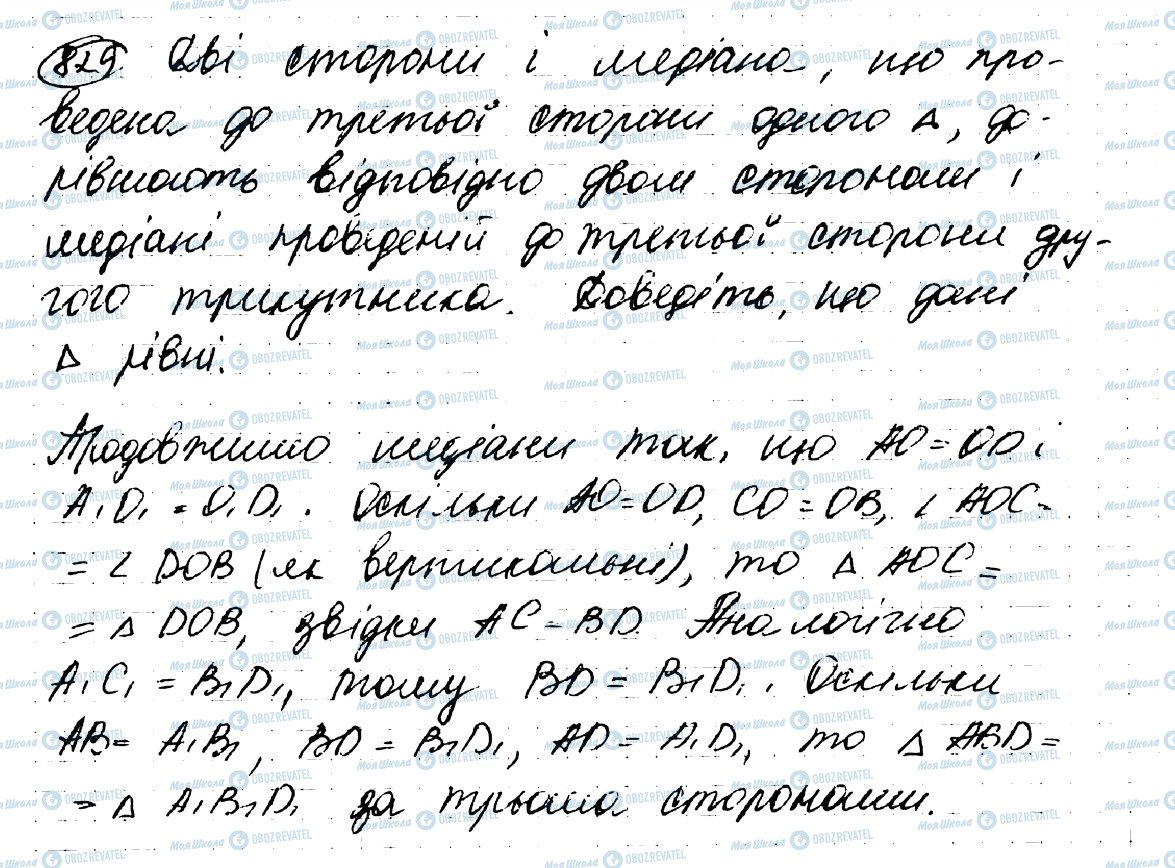 829 Дві сторони і медіана, що про-
ведена до третьої сторони одного Δ, до-
рівнюють відповідно двом сторонам і
медіані проведеній до третьої сторони дру-
гого трикутника. Доведіть, що дані
Δ рівні.
Продовжимо медіани так, що AO = OD і
A₁O₁ = O₁D₁. Оскільки AO = OD, CO = OB, ∠ AOC =
= ∠ DOB (як вертикальні), то Δ AOC =
= Δ DOB, звідки AC = BD. Аналогічно
A₁C₁ = B₁D₁, тому BD = B₁D₁. Оскільки
AB = A₁B₁, BD = B₁D₁, AD = A₁D₁, то Δ ABD =
= Δ A₁B₁D₁ за трьома сторонами.